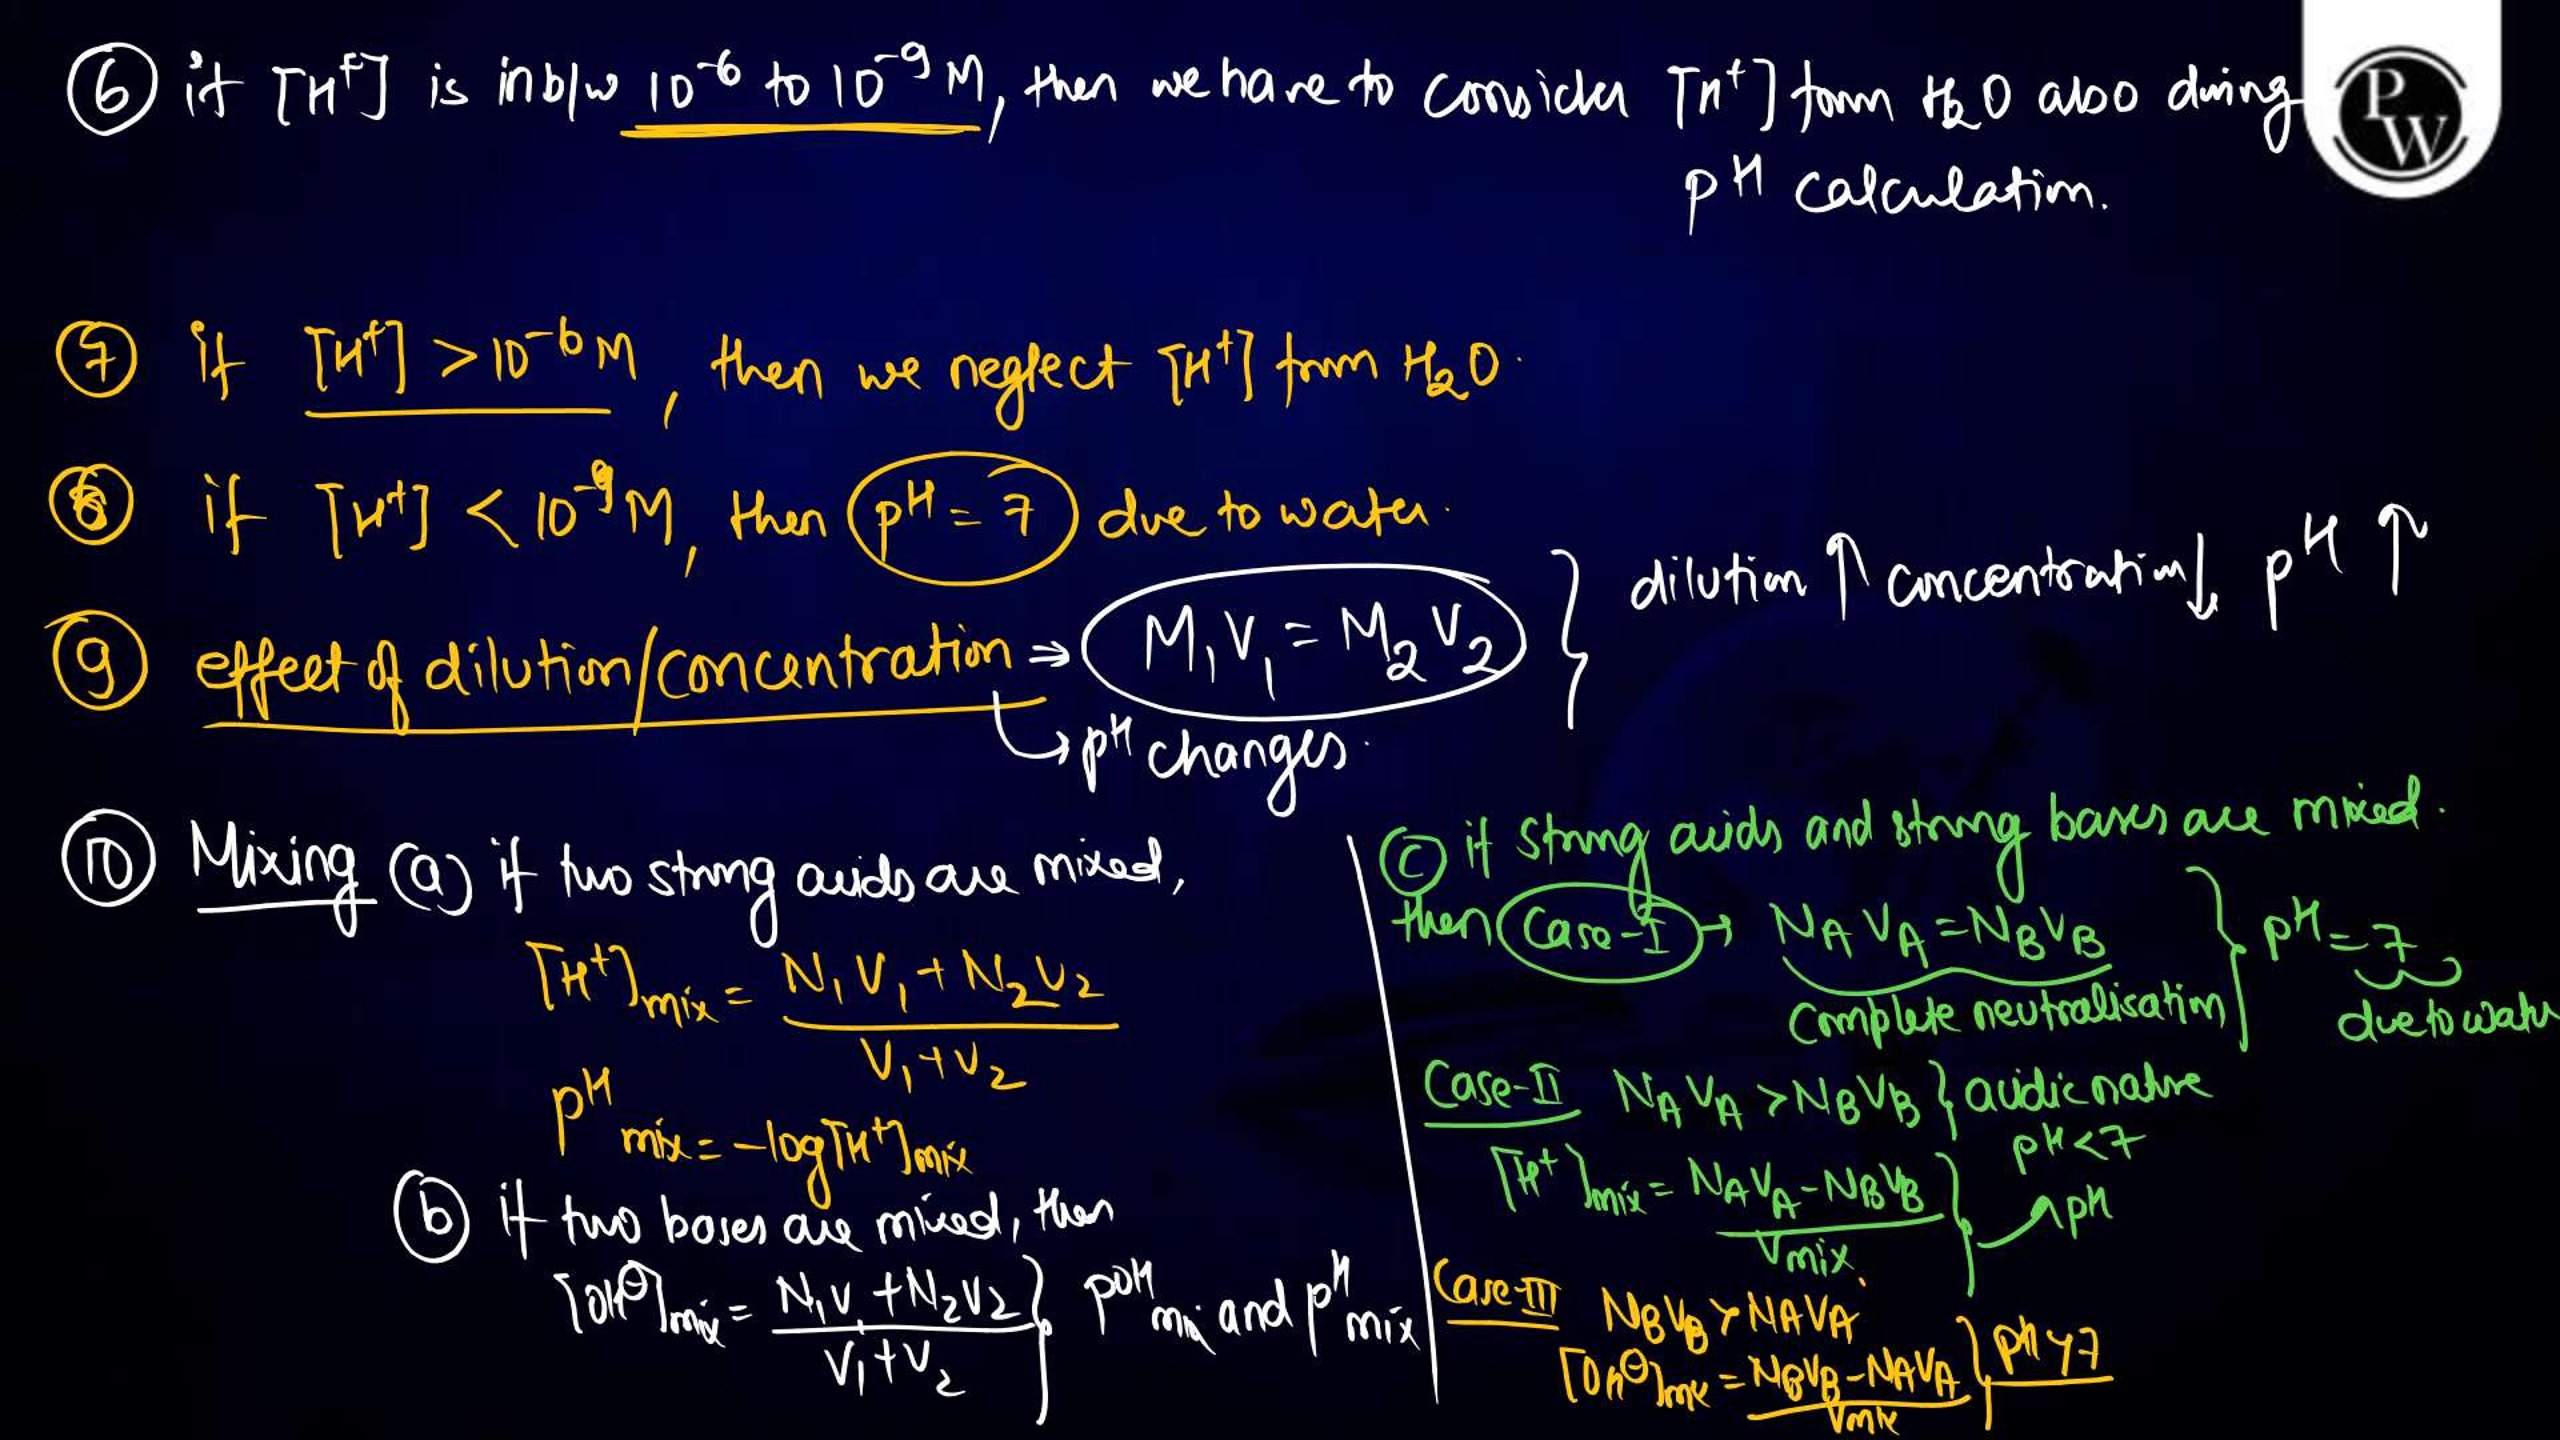 ⑥ if [H⁺] is in b/w 10⁻⁶ to 10⁻⁹ M, then we have to consider [H⁺] from H₂O also during
pH calculation.
PW
⑦ if [H⁺] > 10⁻⁶ M, then we neglect [H⁺] from H₂O.
⑧ if [H⁺] < 10⁻⁹ M, then pH = 7 due to water.
⑨ effect of dilution/concentration ⇒ M₁V₁ = M₂V₂ } dilution ↑ concentration ↓ pH ↑
↳ pH changes.
⑩ Mixing (a) if two strong acids are mixed,
[H⁺]mix = N₁V₁ + N₂V₂
V₁ + V₂
pH mix = -log[H⁺]mix
ⓑ if two bases are mixed, then
[OH⊖]mix = N₁V₁ + N₂V₂ } pOH mix and pH mix
V₁ + V₂
ⓒ if strong acids and strong bases are mixed.
then Case-I → NAVA = NBVB } pH = 7
complete neutralisation due to water
Case-II NAVA > NBVB } acidic nature
pH < 7
[H⁺]mix = NAVA - NBVB } → pH
Vmix.
Case-III NBVB > NAVA
[OH⊖]mix = NBVB - NAVA } pH > 7
Vmix